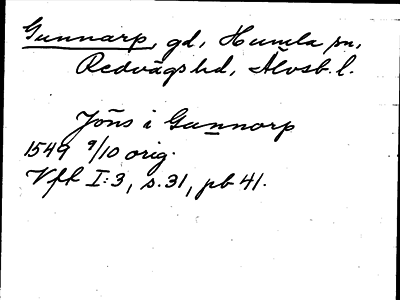 Gunnarp, gd, Humla sn,
Redvägs hd, Älvsb. l.
Jöns i Gannorp
1549 9/10 orig.
Vfk I:3, s. 31, pb 41.